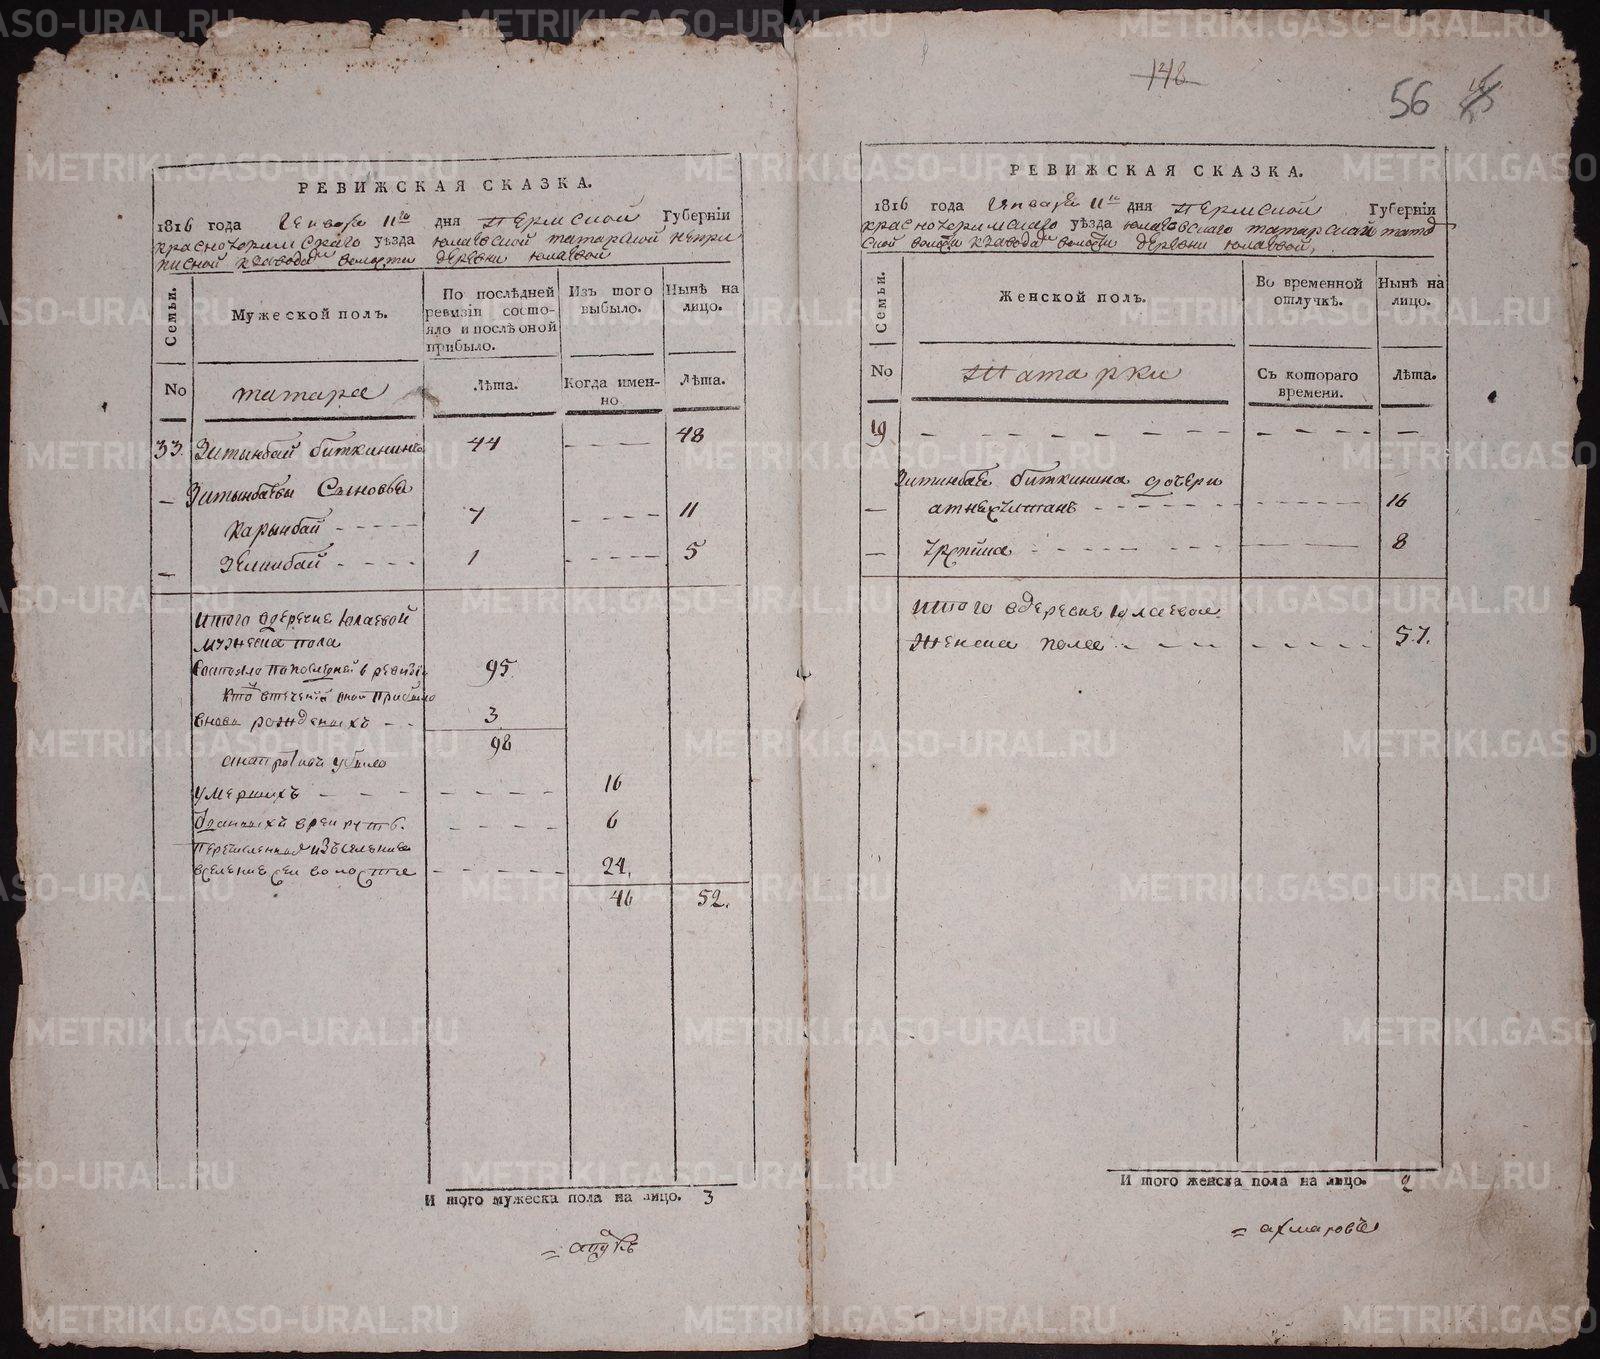 РЕВИЖСКАЯ СКАЗКА.
1816 года Генваря 11го дня Пермской Губерніи
красноуфимскаго уѣзда юлаевской татарской непри
писной кзаводам волости деревни юлаевой
Семьи. Мужеской полъ. По послѣдней ревизіи состояло и послѣ оной прибыло. Изъ того выбыло. Нынѣ на лицо.
No татара Лѣта. Когда именно Лѣта.
33. Зитынбай биткининъ 44 48
Зитынбаевы Сыновья
Карынбай 7 11
Зелинбай 1 5
итого вдеревне Юлаевой
мужеска пола
состояло попоследней в ревизіи 95.
вновь рожденыхъ 3
98
анапротивъ убыло
умершихъ 16
врекруты 6
изъселенія
вселение сей волости 24.
46 52.
И того мужеска пола на лицо. 3
148
56
РЕВИЖСКАЯ СКАЗКА.
1816 года Генваря 11го дня Пермской Губерніи
красноуфимскаго уѣзда юлаевскаго татарской
волости деревни юлаевой,
Семьи. Женской полъ. Во временной отлучкѣ. Нынѣ на лицо.
No Татарки Съ котораго времени. Лѣта.
19
Зитинбая биткинина дочери
16
8
итого вдеревне Юлаевой
женска пола 57.
И того женска пола на лицо. 2
METRIKI.GASO-URAL.RU